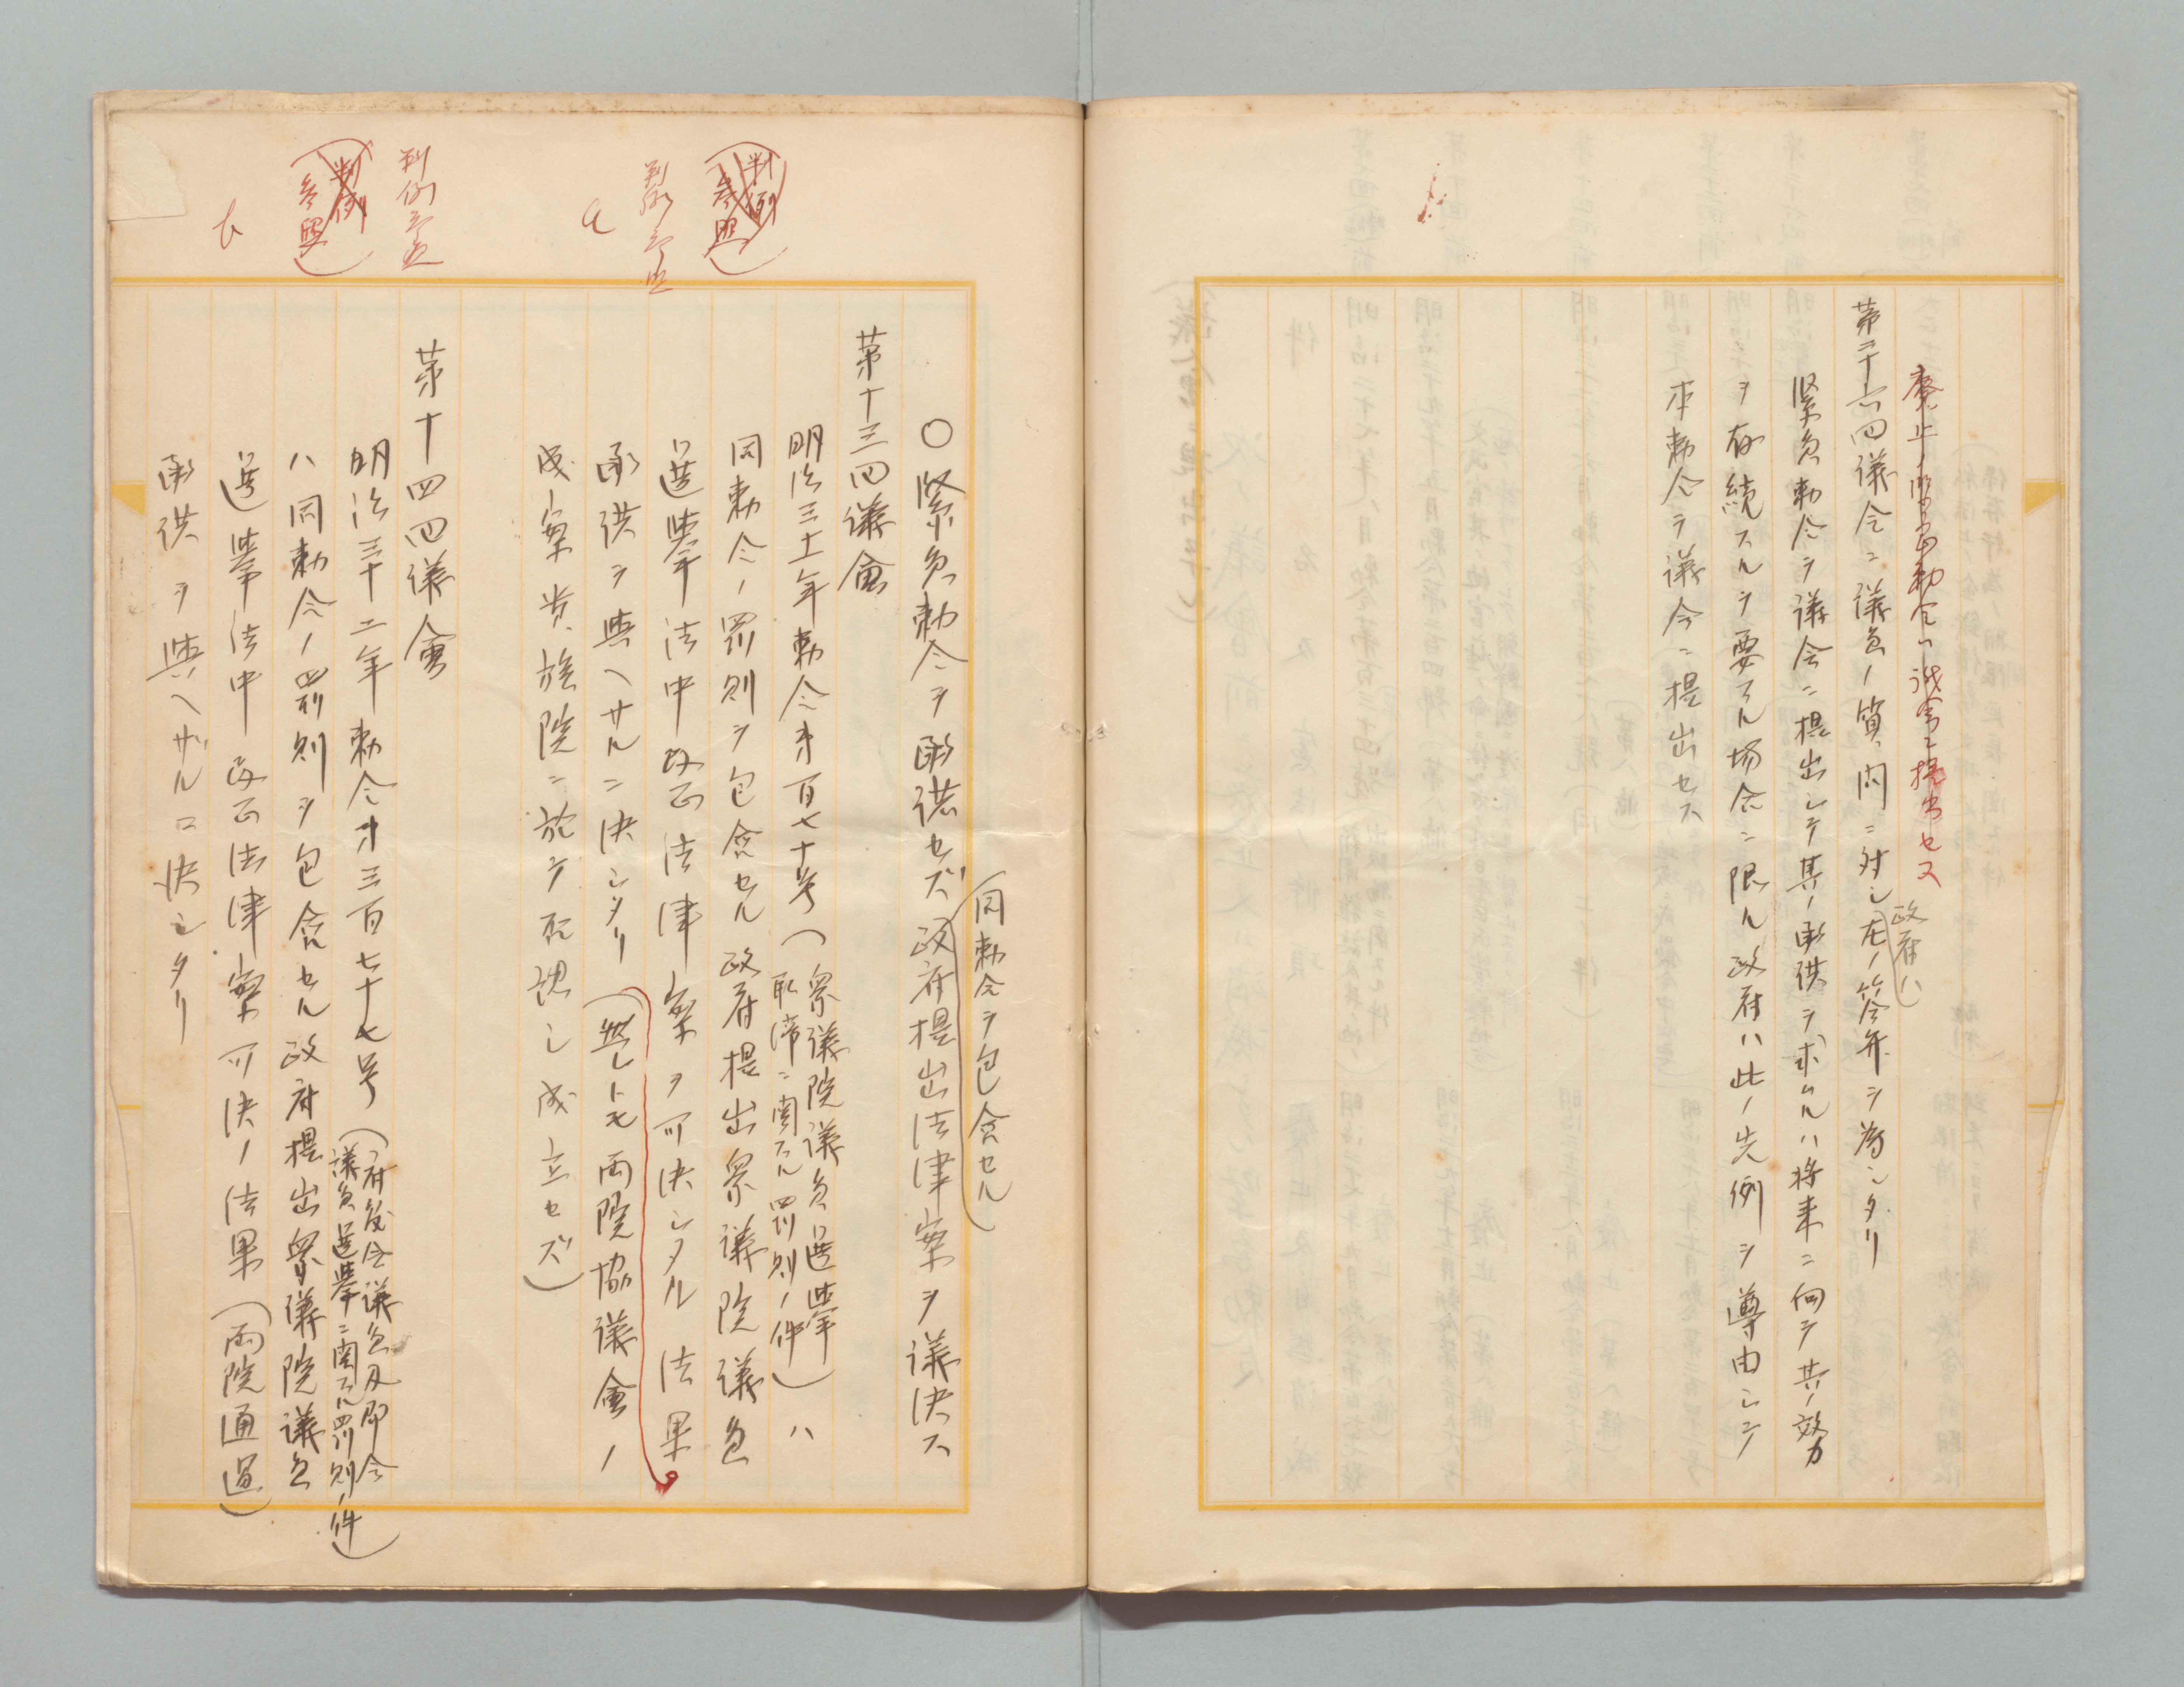 廃止緊急勅令ハ議会ニ提出セス
第二十六回議会ニ議員ノ質問ニ対シ左ノ答弁ヲ為シタリ
政府ハ
緊急勅令ヲ議会ニ提出シテ其ノ承諾ヲ求ムルハ将来ニ向テ其ノ効力
ヲ存続スルヲ要スル場合ニ限ル政府ハ此ノ先例ヲ遵由シテ
本勅令ヲ議会ニ提出セス
同勅令ヲ包含セル
〇緊急勅令ヲ承諾セズ政府提出法律案ヲ議決ス
判例
参照
第十三回議會
明治三十一年勅令第百七十号(衆議院議員選挙
取締ニ関スル罰則ノ件)ハ
同勅令ノ罰則ヲ包含セル政府提出衆議院議員
選挙法中改正法律案ヲ可決シタル法果
承諾ヲ與ヘサルニ決シタリ(然レトモ両院協議會ノ
成案貴族院ニ於テ否認シ成立セズ)
判例
参照
第十四回議會
明治三十二年勅令第三百七十七号(府縣会議員及郡会
議員選挙ニ関スル罰則ノ件)
ハ同勅令ノ罰則ヲ包含セル政府提出衆議院議員
選挙法中改正法律案可決ノ法果(両院通過)
承諾ヲ與ヘザルニ決シタリ